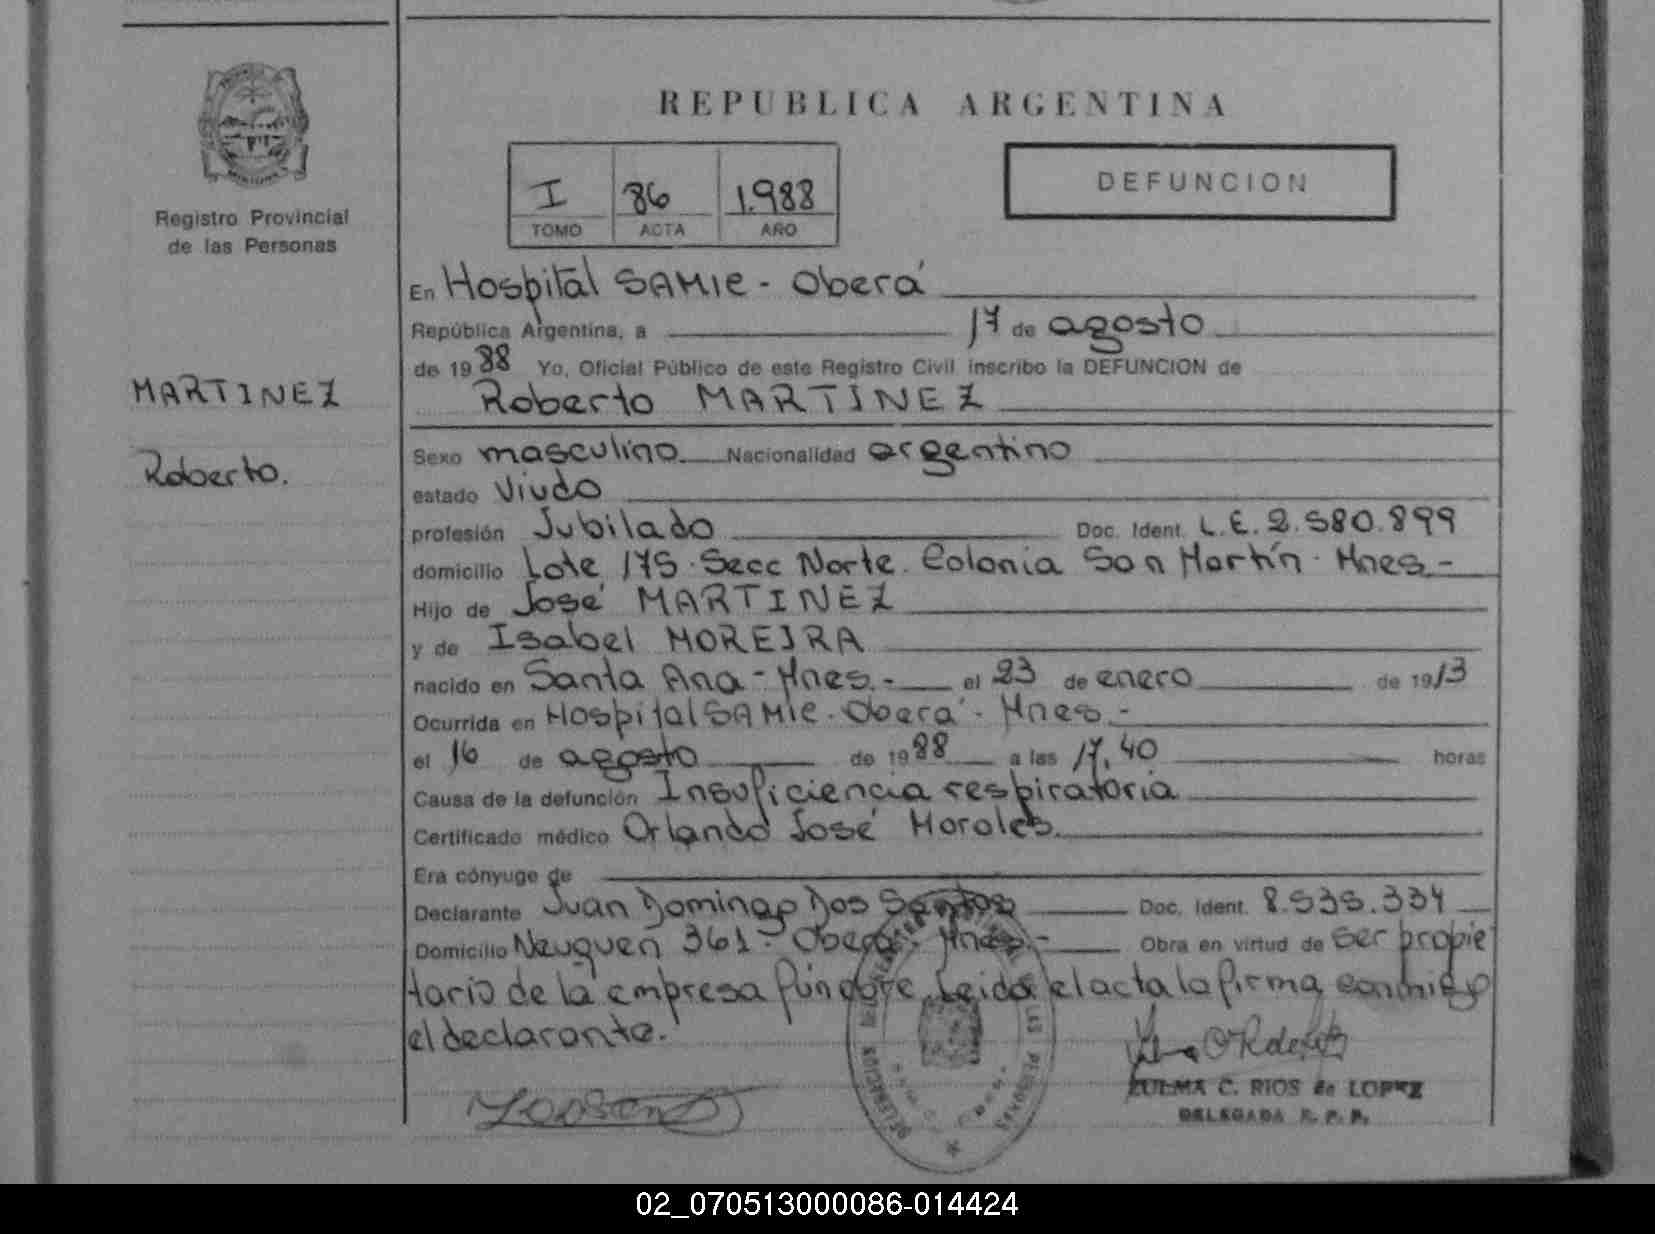 REPUBLICA ARGENTINA
I 86 1.988
TOMO ACTA AÑO
DEFUNCION
Registro Provincial
de las Personas
MARTINEZ
Roberto.
En Hospital SAMIC - Oberá
República Argentina, a 17 de agosto
de 1988 Yo, Oficial Público de este Registro Civil inscribo la DEFUNCION de
Roberto MARTINEZ
Sexo masculino Nacionalidad argentino
estado Viudo
profesión Jubilado Doc. Ident. L.E. 2.580.899
domicilio Lote 175 - Secc Norte. Colonia San Martín - Mnes -
Hijo de José MARTINEZ
y de Isabel MOREIRA
nacido en Santa Ana - Mnes. - el 23 de enero de 1913
Ocurrida en Hospital SAMIC - Oberá - Mnes -
el 16 de agosto de 1988 a las 17,40 horas
Causa de la defunción Insuficiencia respiratoria
Certificado médico Orlando José Morales.
Era cónyuge de
Declarante Juan Domingo Dos Santos Doc. Ident. 8.535.334
Domicilio Neuquen 361 - Oberá - Mnes. - Obra en virtud de ser propie
tario de la empresa fúnebre. Leida el acta la firma conmigo
el declarante.
ZULMA C. RIOS de LOPEZ
DELEGADA R. P. P.
02_070513000086-014424